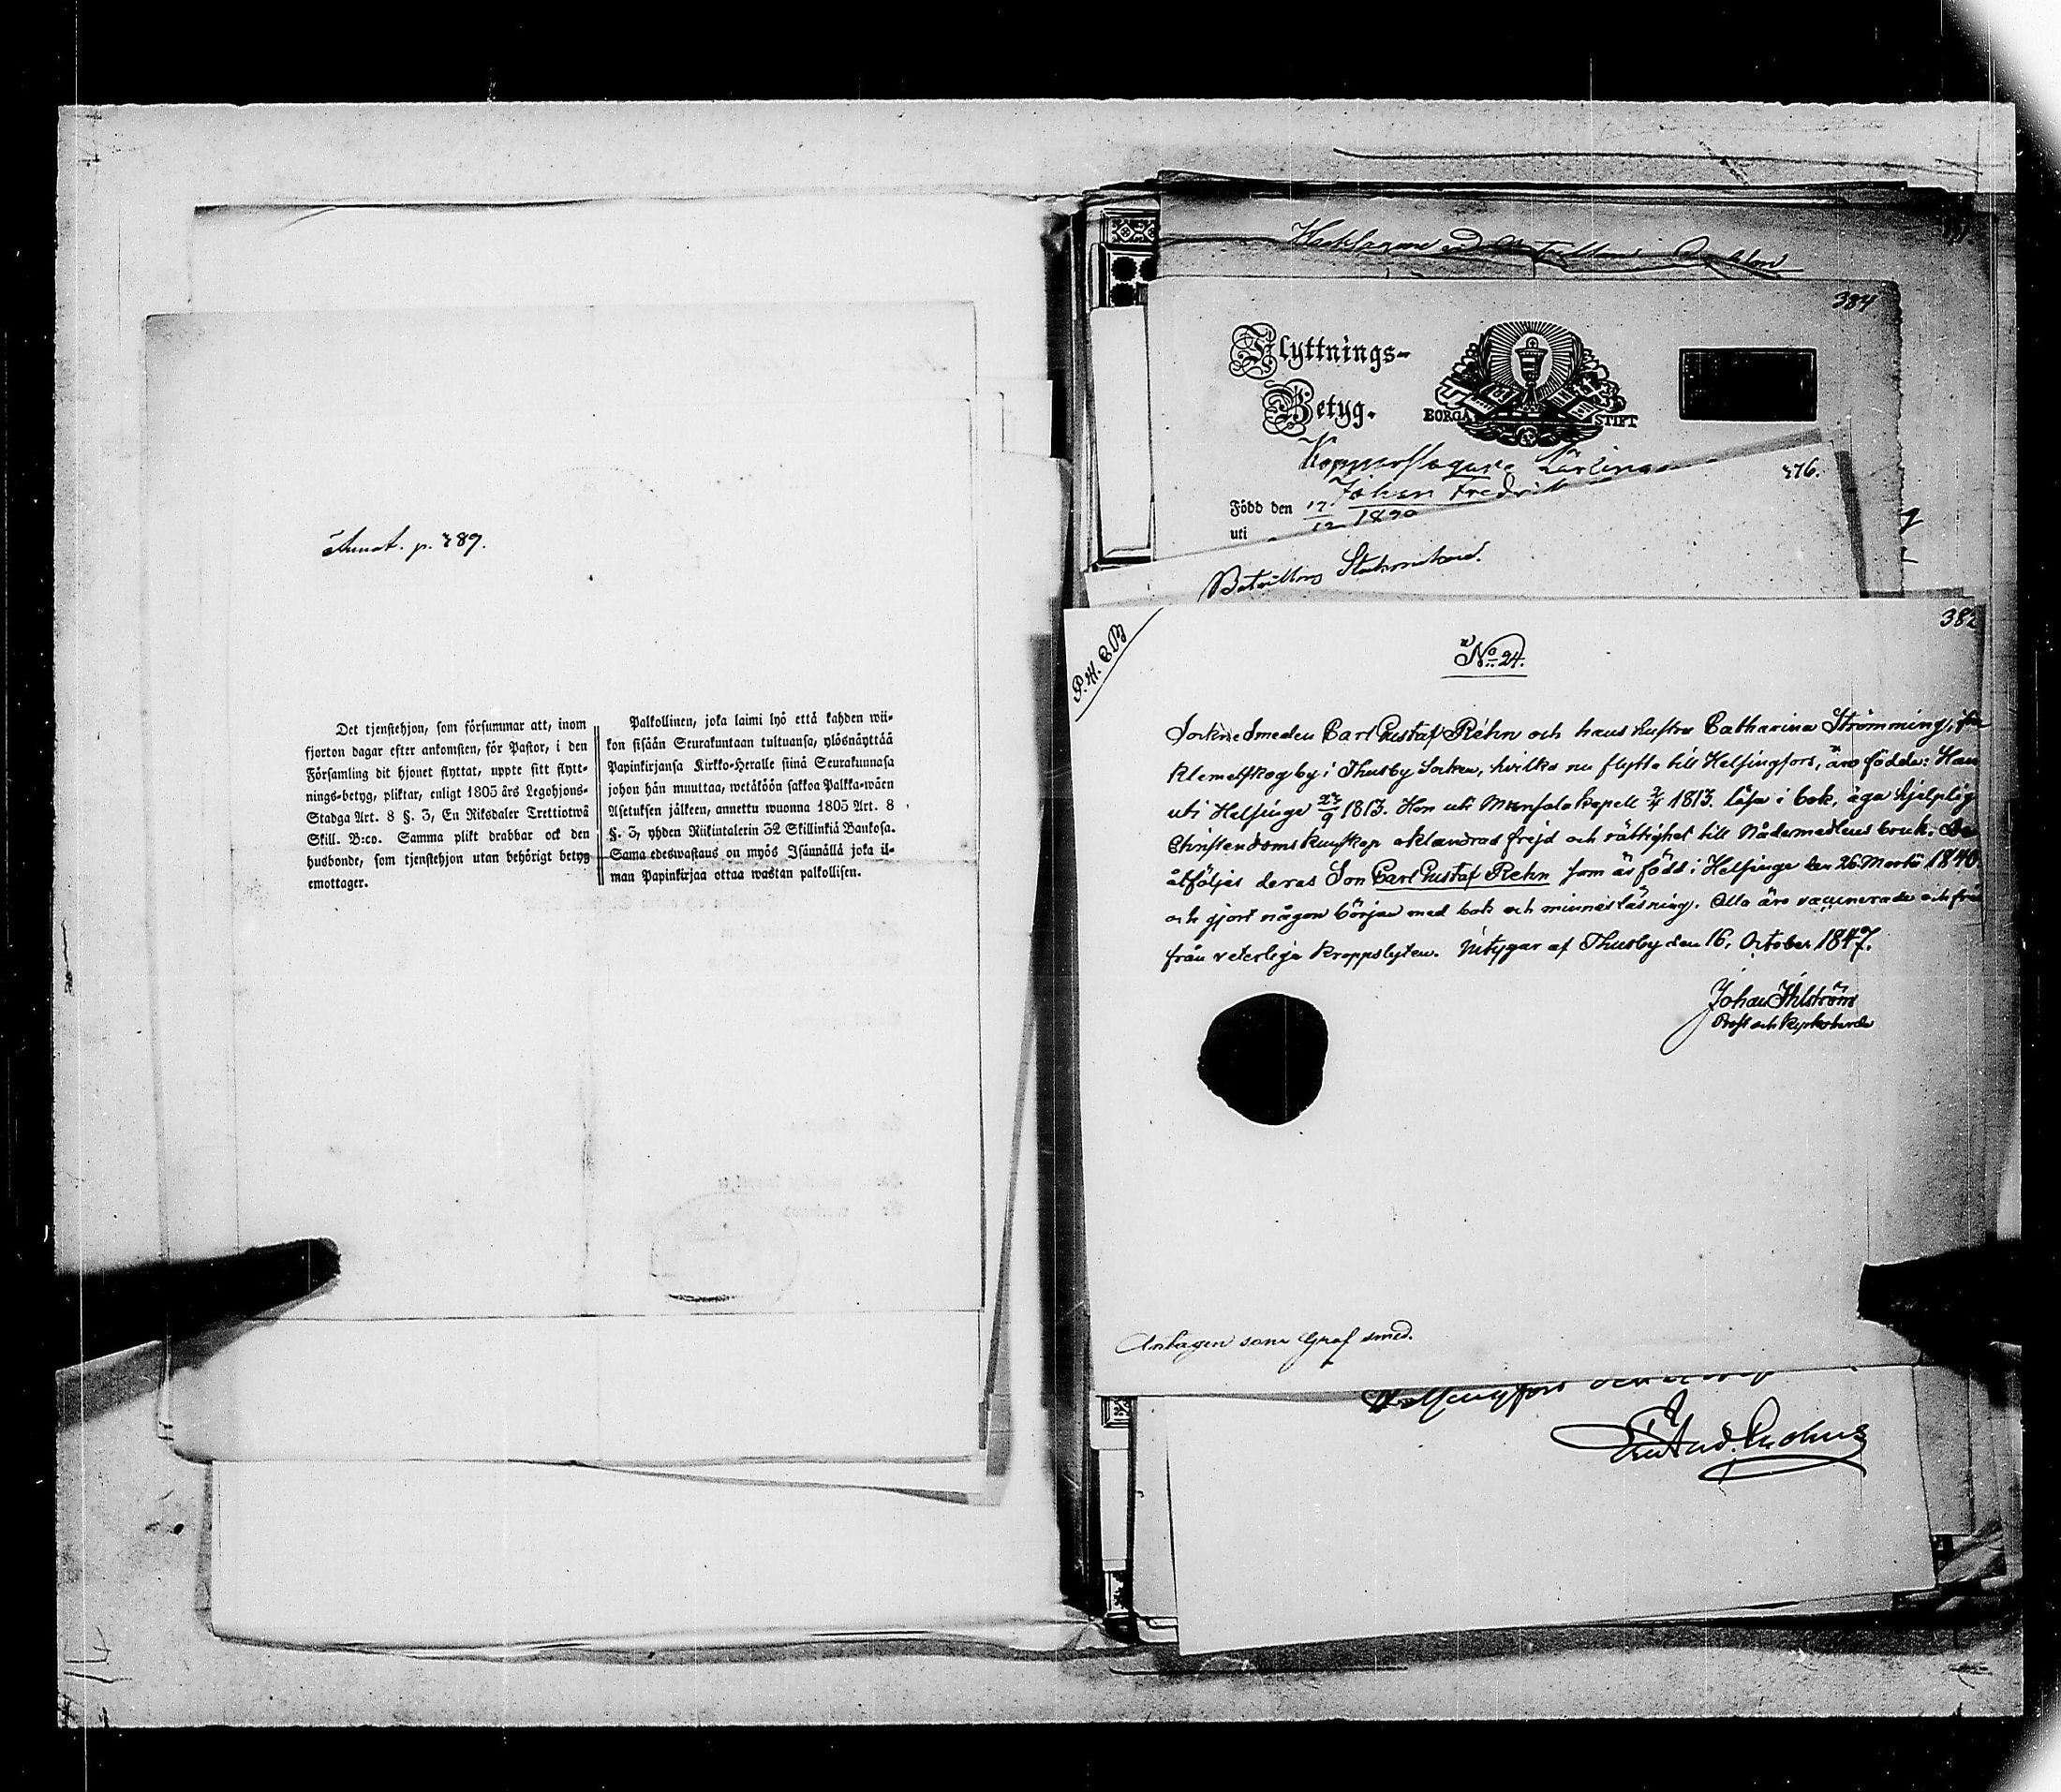 Anmat. p. 789.
Det tjenstehjon, som försummar att, inom
fjorton dagar efter ankomsten, för Pastor, i den
Församling dit hjonet flyttat, uppte sitt flytt-
nings-betyg, pliktar, enligt 1805 års Legohjons-
Stadga Art. 8 §. 3, En Riksdaler Trettiotwå
Skill. B:co. Samma plikt drabbar ock den
husbonde, som tjenstehjon utan behörigt betyg
emottager.
Palkollinen, joka laimi lyö että kahden wii-
kon sisään Seurakuntaan tultuansa, ylösnäyttää
Papinkirjansa Kirkko-Heralle siinä Seurakunnasa
johon hän muuttaa, wetäköön sakkoa Palkka-wäen
Asetuksen jälkeen, annettu wuonna 1805 Art. 8
§. 3, yhden Riikintalerin 32 Skillinkiä Bankosa.
Sama edeswastaus on myös Isännällä joka il-
man Papinkirjaa ottaa wastan palkollisen.
384
Flyttnings-
Betyg.
BORGÅ STIFT
Kopparslagare Lärling
Johan Fredrik
Född den 17/12 1820
uti
376.
Bataillons
382
P. H. E. B
No 24.
Sockne Smeden Carl Gustaf Rehn och hans hustru Catharina Strömming, från
Klemetskog by i Thusby Socken, hvilka nu flytta till Helsingfors, äro födde: Han
uti Helsinge 27/9 1813. Hon uti Mänsala kapell 2/4 1813. läsa i bok, äga hjelplig
Christendoms kunskap oklandrad frejd och rättighet till Nådemedlens bruk. De
åtföljes deras Son Carl Gustaf Rehn som är född i Helsinge den 26 Martii 1840
och gjort någon början med bok och minnesläsning. Alla äro vaccinerade och fria
från veterliga kroppslyten. Utsygar af Thusby den 16. October 1847.
Johan Ahlström
Prost och Kyrkoherde
Antagen som Grof smed.
Helsingfors den